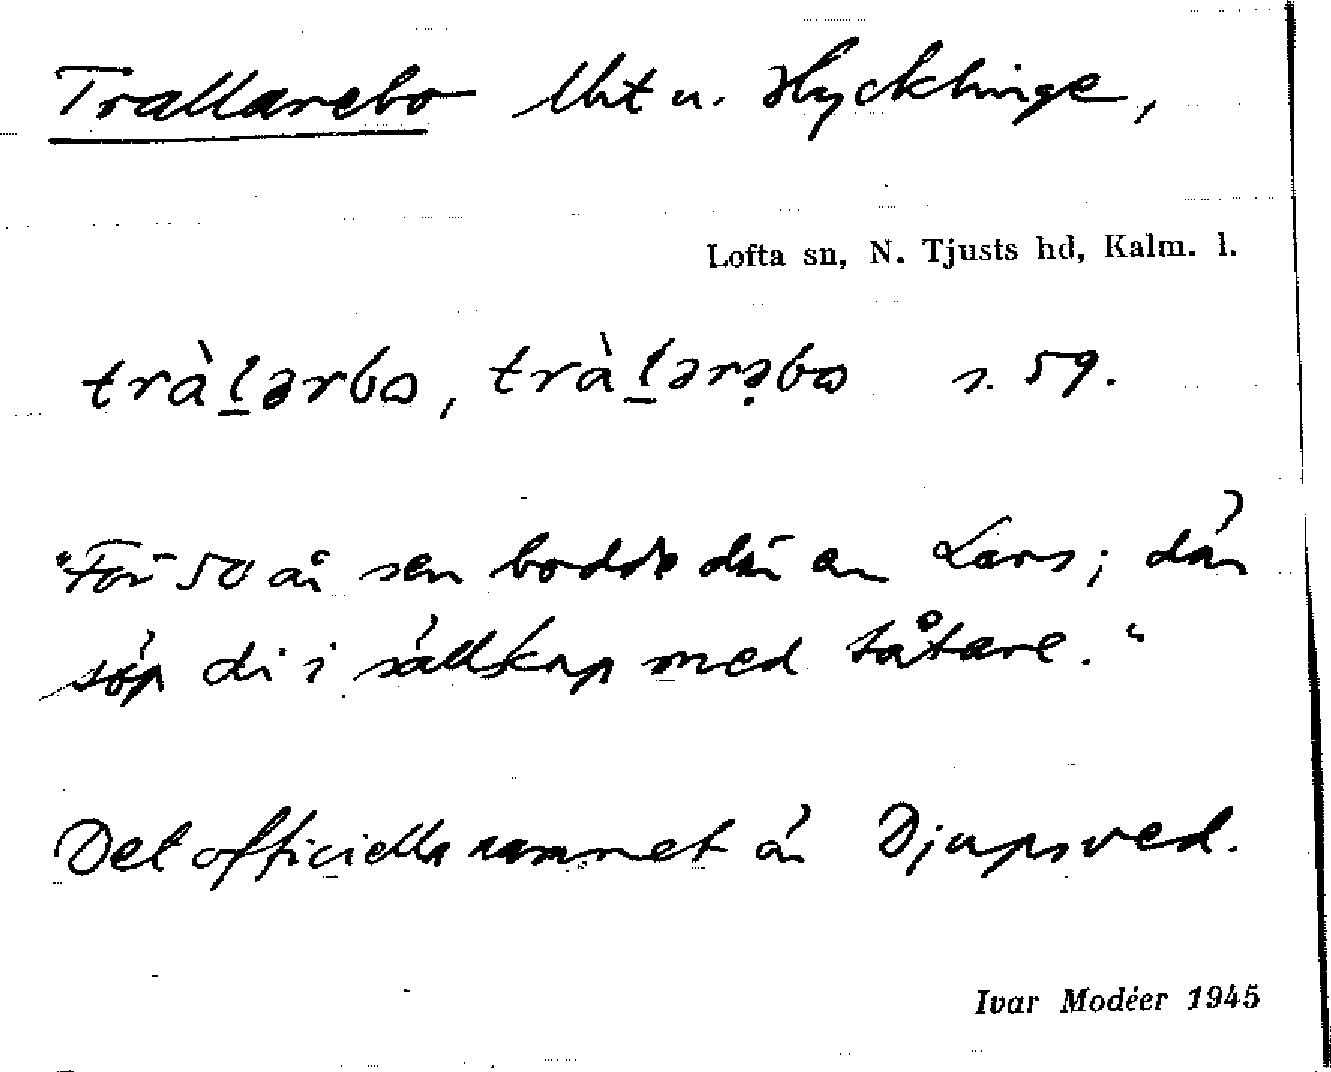 Trallarebo lht u. Hycklinge,
Lofta sn, N. Tjusts hd, Kalm. l.
tràl̲ərbo, tràl̲ərə̣bo s. 59.
"För 50 år sen bodde där en Lars; där
söp di i sällskap med tåtare."
Det officiella namnet är Djupsved.
Ivar Modéer 1945